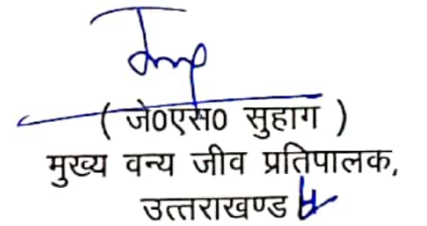 ( जे0एस0 सुहाग )
मुख्य वन्य जीव प्रतिपालक,
उत्तराखण्ड